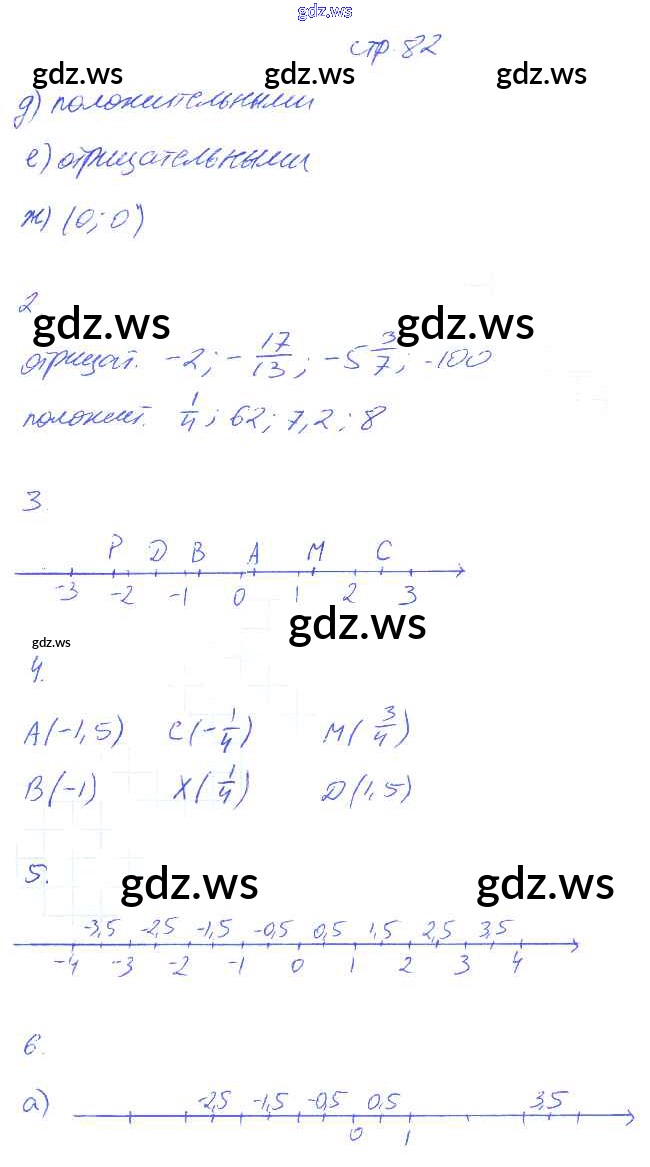 gdz.ws
стр. 82
gdz.ws gdz.ws gdz.ws
д) положительными
е) отрицательными
ж) (0; 0)
2
gdz.ws gdz.ws
отрицат. -2; -17/13; -5 3/7; -100
положит. 1/4; 62; 7,2; 8
3.
P D B A M C
-3 -2 -1 0 1 2 3
gdz.ws
gdz.ws
4.
A(-1,5) C(-1/4) M(3/4)
B(-1) X(1/4) D(1,5)
5.
gdz.ws gdz.ws
-3,5 -2,5 -1,5 -0,5 0,5 1,5 2,5 3,5
-4 -3 -2 -1 0 1 2 3 4
6.
а) -2,5 -1,5 -0,5 0,5 3,5
0 1